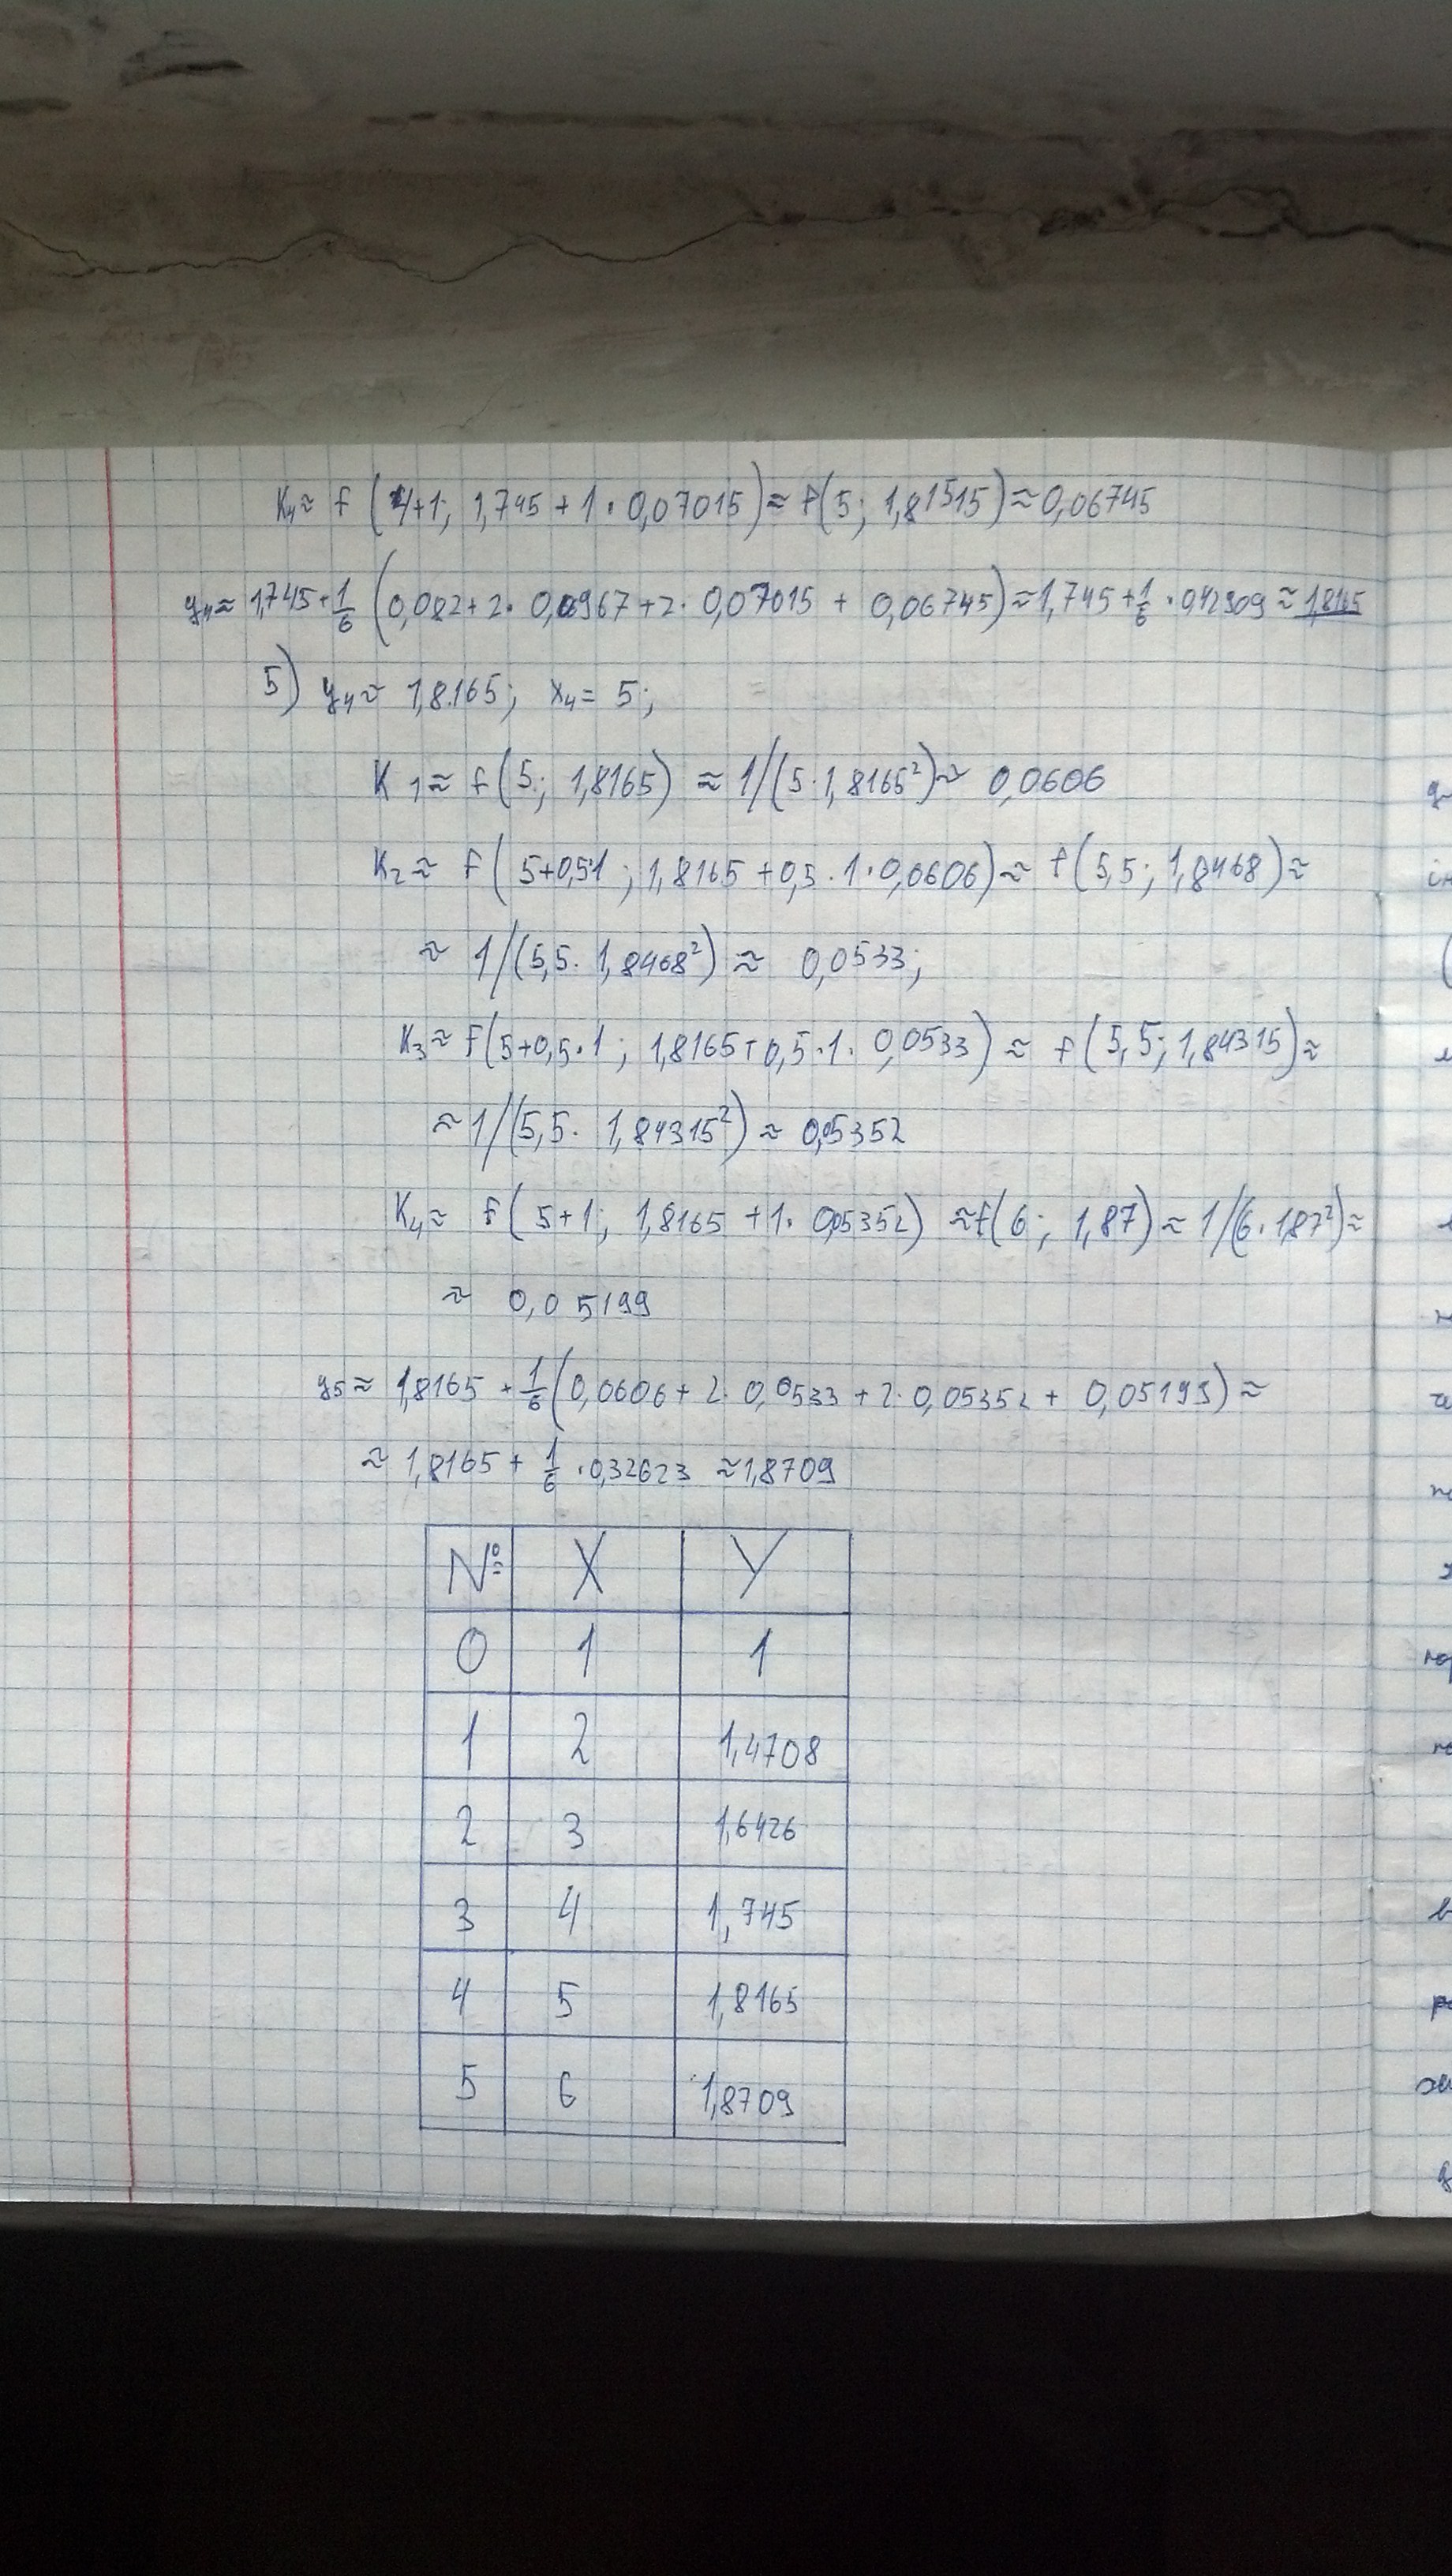 K₄ ≈ f (4+1; 1,745 + 1 · 0,07015) ≈ f(5; 1,81515) ≈ 0,06745
y₄ ≈ 1,745 + 1/6 (0,082 + 2 · 0,06967 + 2 · 0,07015 + 0,06745) ≈ 1,745 + 1/6 · 0,42909 ≈ 1,8165
5) y₄ ≈ 1,8165; x₄ = 5;
K₁ ≈ f(5; 1,8165) ≈ 1/(5·1,8165²) ≈ 0,0606
K₂ ≈ f(5+0,5·1; 1,8165 + 0,5 · 1 · 0,0606) ≈ f(5,5; 1,8468) ≈
≈ 1/(5,5 · 1,8468²) ≈ 0,0533;
K₃ ≈ f(5+0,5·1; 1,8165 + 0,5 · 1 · 0,0533) ≈ f(5,5; 1,84315) ≈
≈ 1/(5,5 · 1,84315²) ≈ 0,05352
K₄ ≈ f(5+1; 1,8165 + 1 · 0,05352) ≈ f(6; 1,87) ≈ 1/(6 · 1,87²) ≈
≈ 0,05199
y₅ ≈ 1,8165 + 1/6 (0,0606 + 2 · 0,0533 + 2 · 0,05352 + 0,05199) ≈
≈ 1,8165 + 1/6 · 0,32623 ≈ 1,8709
№ X Y
0 1 1
1 2 1,4708
2 3 1,6426
3 4 1,745
4 5 1,8165
5 6 1,8709